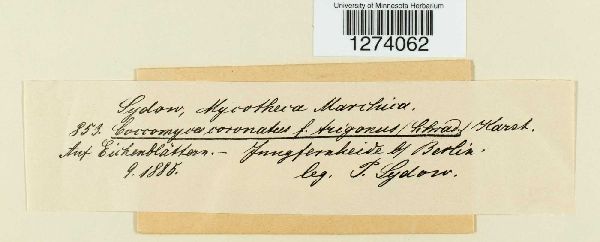 University of Minnesota Herbarium
1274062
Sydow, Mycotheca Marchica.
853. Coccomyces coronatus f. trigonus (Schrad.) Karst.
Auf Eichenblättern. — Jungfernheide b/ Berlin.
9. 1885. leg. P. Sydow.